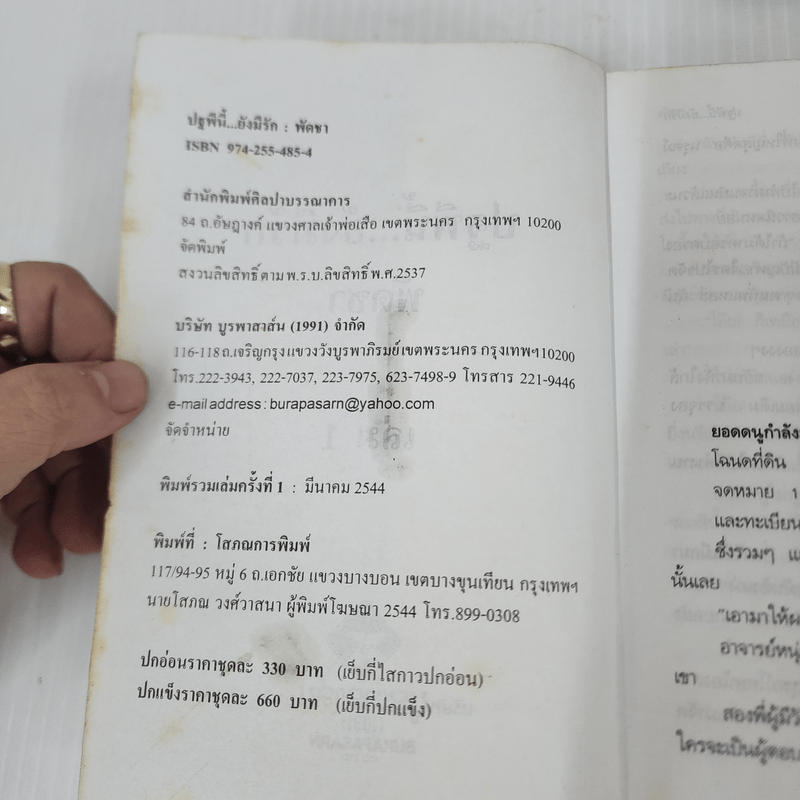 ปฐพีนี้...ยังมีรัก : พัดชา
ISBN 974-255-485-4
สำนักพิมพ์ศิลปาบรรณาคาร
84 ถ.อัษฎางค์ แขวงศาลเจ้าพ่อเสือ เขตพระนคร กรุงเทพฯ 10200
จัดพิมพ์
สงวนลิขสิทธิ์ตาม พ.ร.บ.ลิขสิทธิ์ พ.ศ.2537
บริษัท บูรพาสาส์น (1991) จำกัด
116-118 ถ.เจริญกรุง แขวงวังบูรพาภิรมย์ เขตพระนคร กรุงเทพฯ 10200
โทร.222-3943, 222-7037, 223-7975, 623-7498-9 โทรสาร 221-9446
e-mail address : burapasarn@yahoo.com
จัดจำหน่าย
พิมพ์รวมเล่มครั้งที่ 1 : มีนาคม 2544
พิมพ์ที่ : โสภณการพิมพ์
117/94-95 หมู่ 6 ถ.เอกชัย แขวงบางบอน เขตบางขุนเทียน กรุงเทพฯ
นายโสภณ วงศ์วาสนา ผู้พิมพ์โฆษณา 2544 โทร.899-0308
ปกอ่อนราคาชุดละ 330 บาท (เย็บกี่ไสกาวปกอ่อน)
ปกแข็งราคาชุดละ 660 บาท (เย็บกี่ปกแข็ง)
ยอดดนูกำลัง
โฉนดที่ดิน
จดหมาย 1
และทะเบียน
ซึ่งรวมๆ แ
นั้นเลย
"เอามาให้ผ
อาจารย์หนุ่
เขา
สองพี่ผู้มีวั
ใครจะเป็นผู้ตอบ